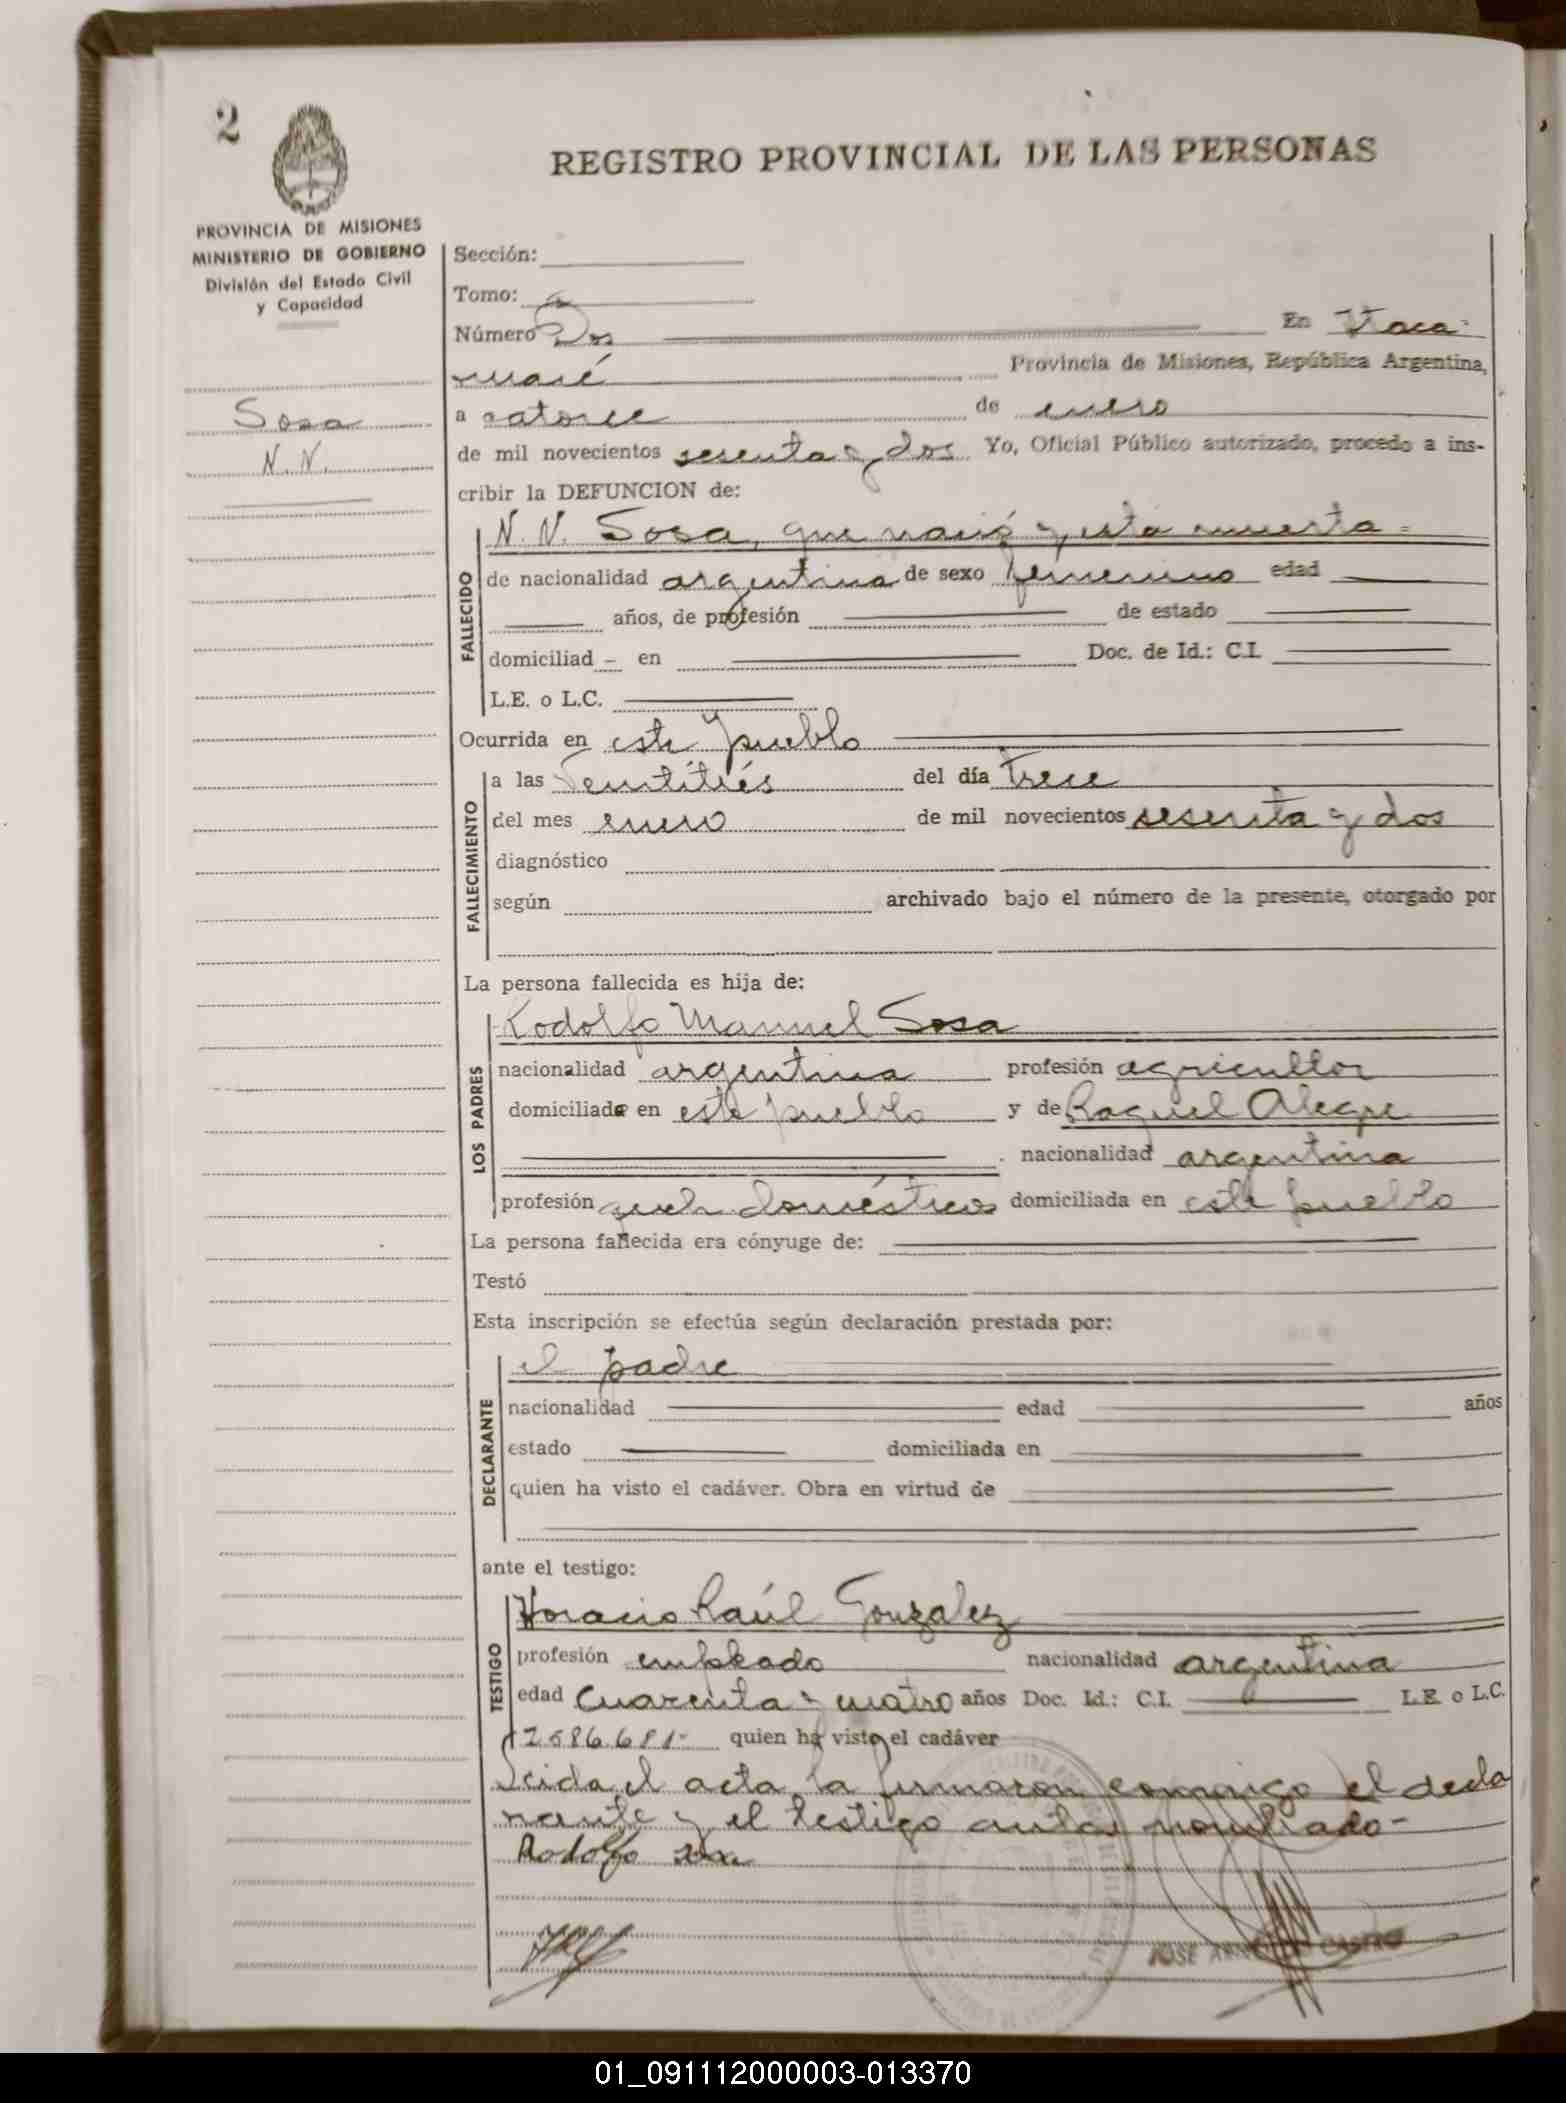 2
REGISTRO PROVINCIAL DE LAS PERSONAS
PROVINCIA DE MISIONES
MINISTERIO DE GOBIERNO
División del Estado Civil
y Capacidad
Sosa
N. N.
Sección:
Tomo:
Número Dos En Itaca-
ruaré Provincia de Misiones, República Argentina,
a catorce de enero
de mil novecientos sesenta y dos Yo, Oficial Público autorizado, procedo a ins-
cribir la DEFUNCION de:
FALLECIDO
N. N. Sosa, que nació y esta muerta =
de nacionalidad argentina de sexo femenino edad
años, de profesión de estado
domiciliad - en Doc. de Id.: C.I.
L.E. o L.C.
Ocurrida en este pueblo
FALLECIMIENTO
a las Ventitrés del día trece
del mes enero de mil novecientos sesenta y dos
diagnóstico
según archivado bajo el número de la presente, otorgado por
La persona fallecida es hija de:
LOS PADRES
Rodolfo Manuel Sosa
nacionalidad argentina profesión agricultor
domiciliado en este pueblo y de Raquel Alegre
nacionalidad argentina
profesión queh. domésticos domiciliada en este pueblo
La persona fallecida era cónyuge de:
Testó
Esta inscripción se efectúa según declaración prestada por:
DECLARANTE
el padre
nacionalidad edad años
estado domiciliada en
quien ha visto el cadáver. Obra en virtud de
ante el testigo:
TESTIGO
Horacio Raúl Gonzalez
profesión empleado nacionalidad argentina
edad cuarenta y cuatro años Doc. Id.: C.I. L.E. o L.C.
2586.681- quien ha visto el cadáver
Leida el acta la firmaron conmigo el decla
rante y el testigo antes nombrado-
Rodolfo Sosa
JOSE CASTRO
01_091112000003-013370